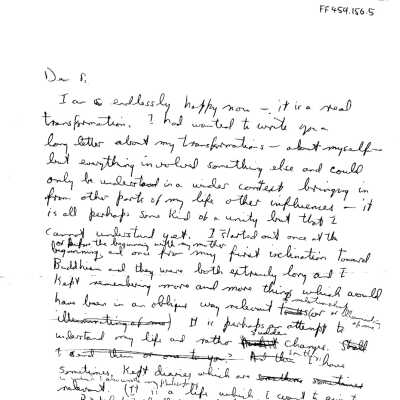 FF459.156.5
Dear P.
I am so endlessly happy now – it is a real
transformation. I had wanted to write you a
long letter about my transformations – about myself –
but everything involved something else and could
only be understood in a wider context bringing in
from other parts of my life other influences – it
is all perhaps some kind of a unity but that I
cannot understand yet. I started out once at the
beginning with my mother
beginning, and once from my first inclination toward
Buddhism and they were both extremely long and I
kept remembering more and more things which would
have been in an oblique way relevant (or
illuminating of me) It is perhaps an attempt to
understand my life and rather changes.
I have
sometimes, kept diaries which are
relevant. (It is a life which I want to